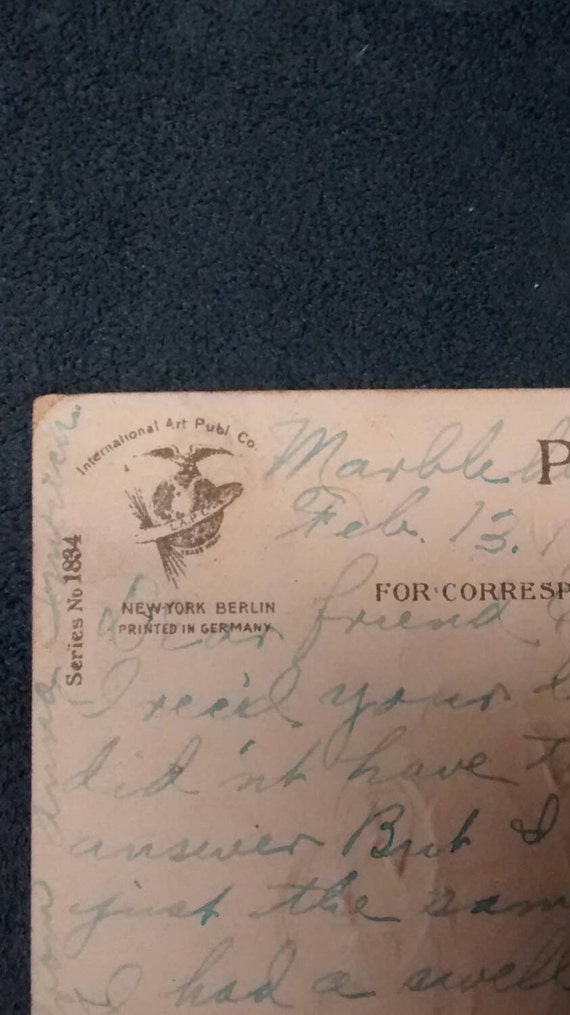 International Art Publ. Co.
I.A.P.Co.
TRADE MARK
NEW-YORK BERLIN
PRINTED IN GERMANY
Series No 1834
P
FOR CORRESP
Feb. 13.
Dear friend
I rec'd your
did'nt have
answer But I
just the sam
I had a swell
from